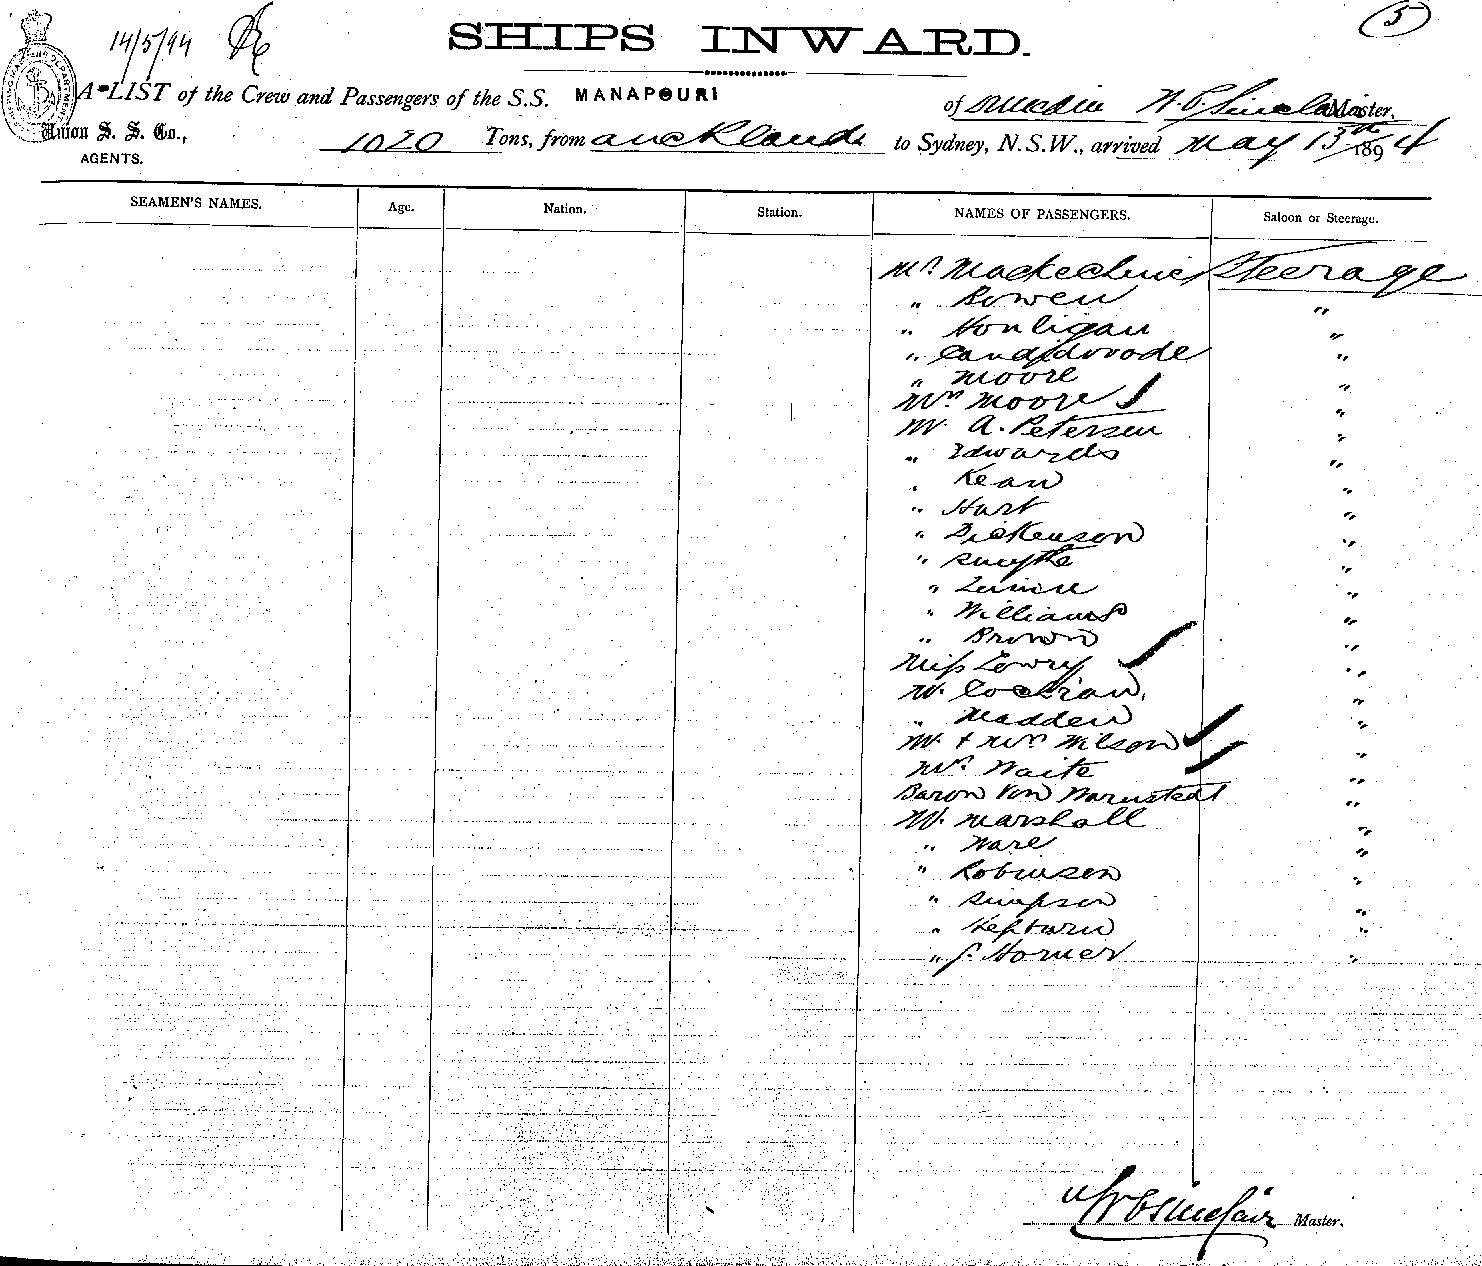 5
14/5/94
SHIPS INWARD.
A LIST of the Crew and Passengers of the S.S. MANAPOURI of Dunedin W. C. Sinclair Master,
Union S. S. Co.,
AGENTS.
1020 Tons, from Auckland to Sydney, N.S.W., arrived May 13th 1894
SEAMEN'S NAMES. Age. Nation. Station. NAMES OF PASSENGERS. Saloon or Steerage.
Mr. Mackechnie Steerage
" Bowen "
" Houligan "
" "
" Moore "
Mrs Moore "
Mr A. Petersen "
" Edwards "
" Kean "
" Hart "
" Dickenson "
" Smythe "
" "
" Williams "
" Brown "
Miss Lowry "
Mr Cochran "
" Madden "
Mr + Mrs Wilson "
Mrs Waite "
Baron Von Warnstedt "
Mr Marshall "
" Ware "
" Robinson "
" Simpson "
" Hepburn "
" Horner "
W C Sinclair Master.